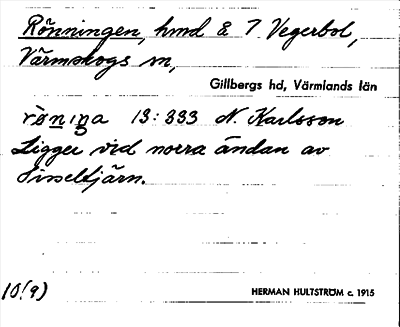 Rönningen, hmd å 7 Vegerbol,
Värmskogs sn,
Gillbergs hd, Värmlands län
rö̀niŋa 13:333 N. Karlsson
Ligger vid norra ändan av
Sisseltjärn.
10(9)
HERMAN HULTSTRÖM c. 1915